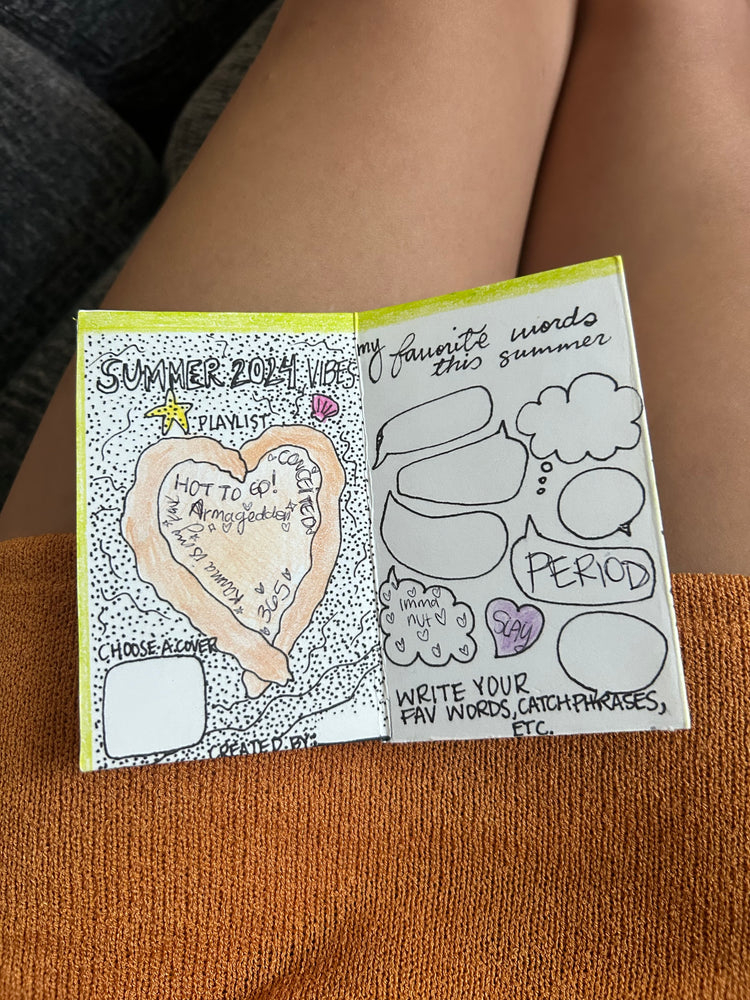 SUMMER 2024 VIBES
PLAYLIST
HOT TO GO!
Armageddon
CONCEITED
Karma is my
365
CHOOSE A COVER
CREATED BY:
my favorite words
this summer
PERIOD
Imma
nut
SLAY
WRITE YOUR
FAV WORDS, CATCHPHRASES,
ETC.